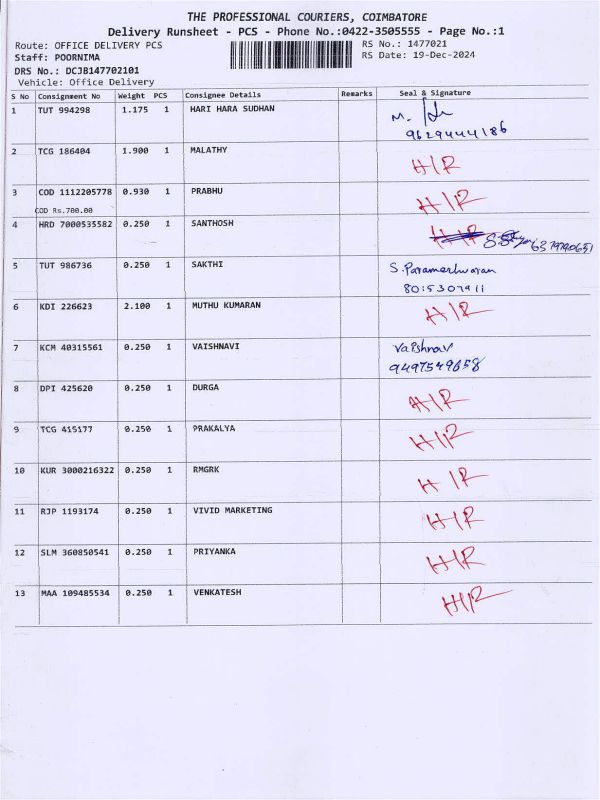 THE PROFESSIONAL COURIERS, COIMBATORE
Delivery Runsheet - PCS - Phone No.:0422-3505555 - Page No.:1
Route: OFFICE DELIVERY PCS RS No.: 1477021
Staff: POORNIMA RS Date: 19-Dec-2024
DRS No.: DCJB147702101
Vehicle: Office Delivery
S No Consignment No Weight PCS Consignee Details Remarks Seal & Signature
1 TUT 994298 1.175 1 HARI HARA SUDHAN M.
9629444186
2 TCG 186404 1.900 1 MALATHY H/R
3 COD 1112205778 0.930 1 PRABHU H/R
COD Rs.700.00
4 HRD 7000535582 0.250 1 SANTHOSH H/R
5 TUT 986736 0.250 1 SAKTHI S. Parameshwaran
8015307911
6 KDI 226623 2.100 1 MUTHU KUMARAN H/R
7 KCM 40315561 0.250 1 VAISHNAVI Vaishnavi
9497549658
8 DPI 425620 0.250 1 DURGA H/R
9 TCG 415177 0.250 1 PRAKALYA H/R
10 KUR 3000216322 0.250 1 RMGRK H/R
11 RJP 1193174 0.250 1 VIVID MARKETING H/R
12 SLM 360850541 0.250 1 PRIYANKA H/R
13 MAA 109485534 0.250 1 VENKATESH H/R